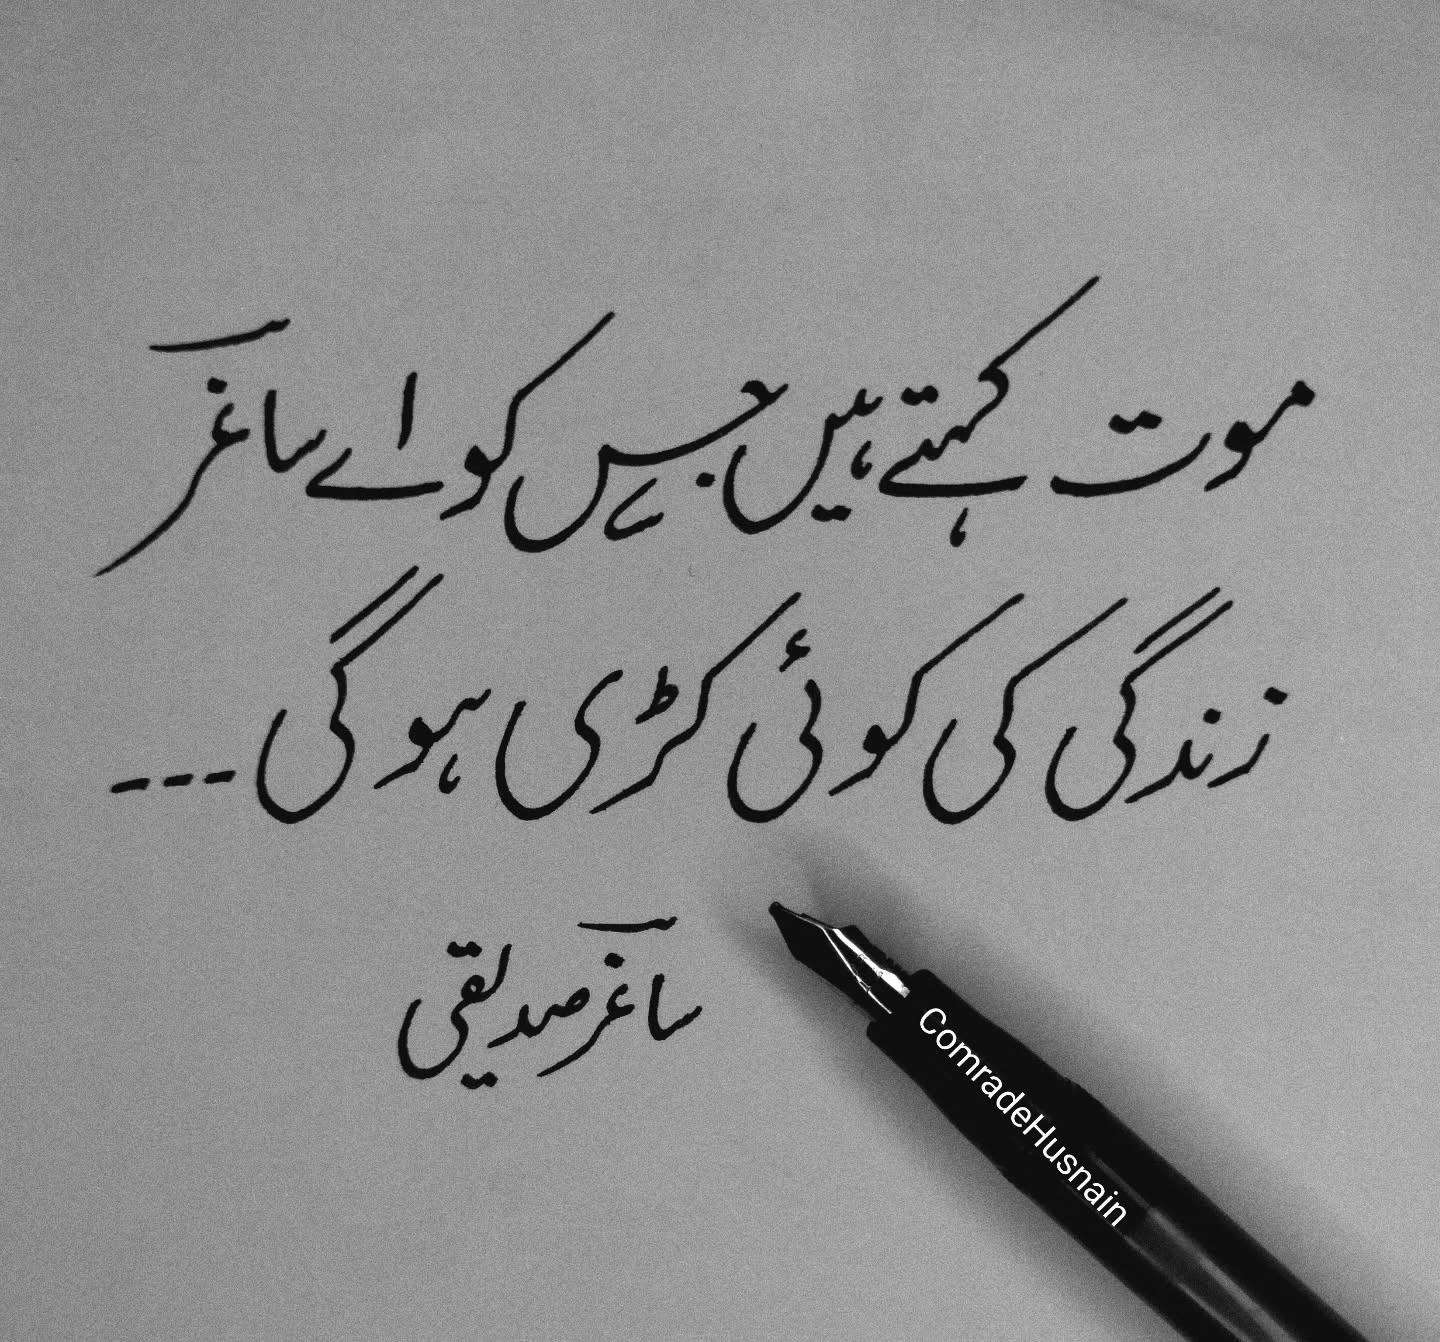 موت کہتے ہیں جس کو اے ساغرؔ
زندگی کی کوئی کڑی ہو گی ---
ساغرؔ صدیقی
ComradeHusnain